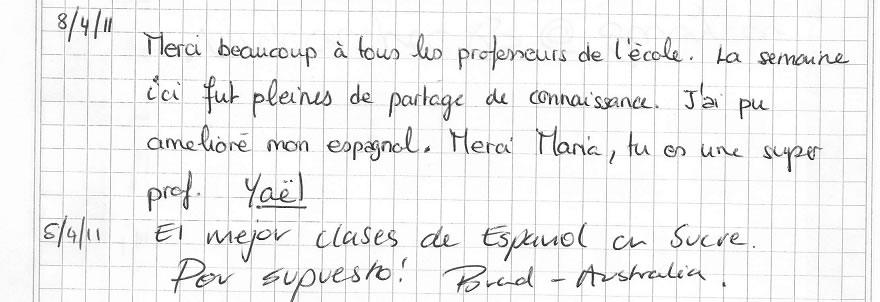 8/4/11
Merci beaucoup à tous les professeurs de l'école. La semaine
ici fut pleines de partage de connaissance. J'ai pu
amelioré mon espagnol. Merci Maria, tu es une super
prof. Yaël
5/4/11 El mejor clases de Espanol en Sucre.
Por supuesto! Brad - Australia.